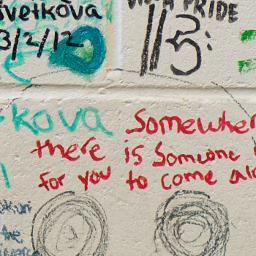 svetkova
3/2/12
PRIDE
113
kova
Somewher
there is Someone
for you to come alo
the